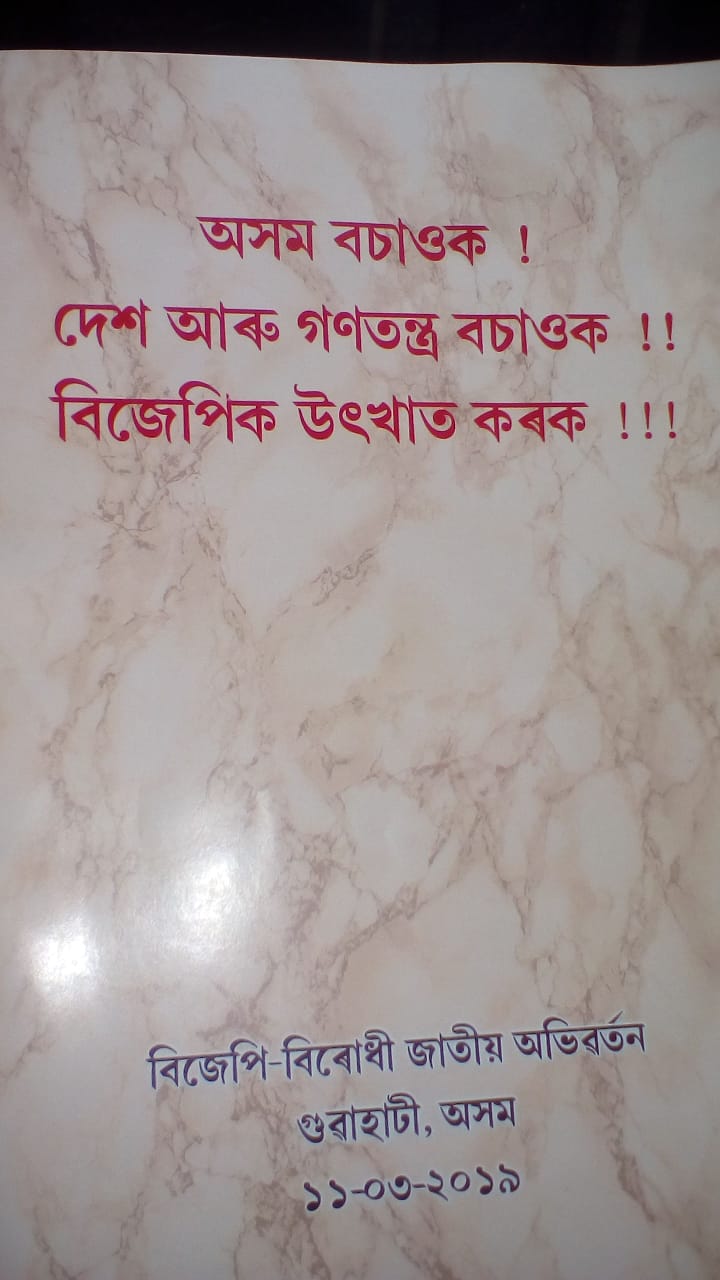 অসম বচাওক !
দেশ আৰু গণতন্ত্ৰ বচাওক !!
বিজেপিক উৎখাত কৰক !!!
বিজেপি-বিৰোধী জাতীয় অভিৱৰ্তন
গুৱাহাটী, অসম
১১-০৩-২০১৯